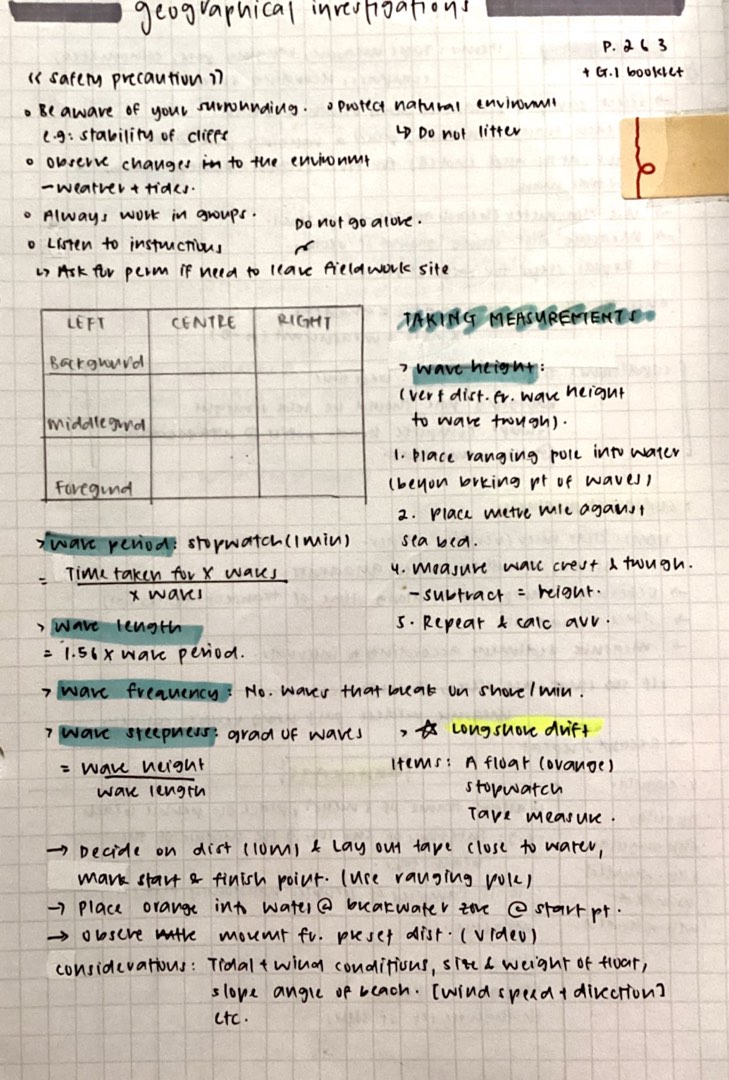 geographical investigations
P. 263
+ G.I booklet
<< safety precaution >>
• Be aware of your surrounding.
e.g: stability of cliffs
• Protect natural environmt
↳ Do not litter
• observe changes to the environmt
- weather + tides.
• Always work in groups.
Do not go alone.
• Listen to instructions
↳ Ask for perm if need to leave fieldwork site
LEFT CENTRE RIGHT
Backgnurd
Middlegrnd
Foregrnd
TAKING MEASUREMENTS
> wave height:
(vert dist. fr. wave height
to wave trough).
1. Place ranging pole into water
(beyon brking pt of waves)
2. Place metre rule against
sea bed.
4. Measure wave crest & trough.
- subtract = height.
5. Repeat & calc avr.
> wave period: stopwatch (1 min)
= Time taken for X waves
X waves
> wave length
= 1.56 X wave period.
> wave frequency: No. waves that break on shore/min.
> wave steepness: grad of waves
= wave height
wave length
> ☆ Longshore drift
Items: A float (orange)
stopwatch
Tape measure.
→ Decide on dist (10m) & lay out tape close to water,
mark start & finish point. (use ranging pole)
→ Place orange into water @ breakwater zone @ start pt.
→ observe movmt fr. preset dist. (video)
considerations: Tidal + wind conditions, size & weight of float,
slope angle of beach. [wind speed + direction]
etc.